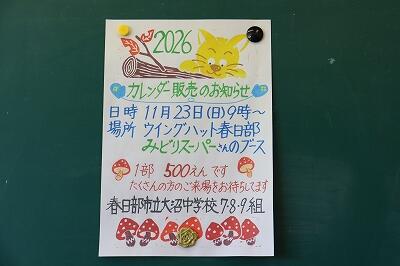 2026
カレンダー販売のお知らせ
日時 11月23日(日)9時～
場所 ウイングハット春日部
みどりスーパーさんのブース
1部 500えんです
たくさんの方のご来場をお待ちしてます
春日部市立大沼中学校 7・8・9組